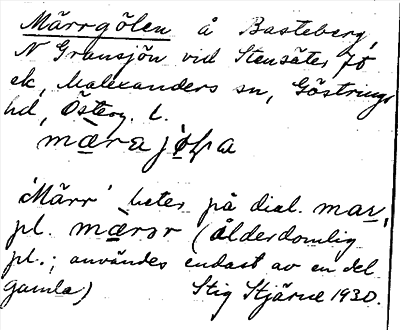 Märrgölen å Basteberg,
N Gransjön vid Stensäter fö
ek, Malexanders sn, Göstrings
hd, Österg. l.
mærajöɽa
'Märr' heter på dial. mar,
pl. mæror (ålderdomlig
pl.; användes endast av en del
gamla) Stig Stjärne 1930.